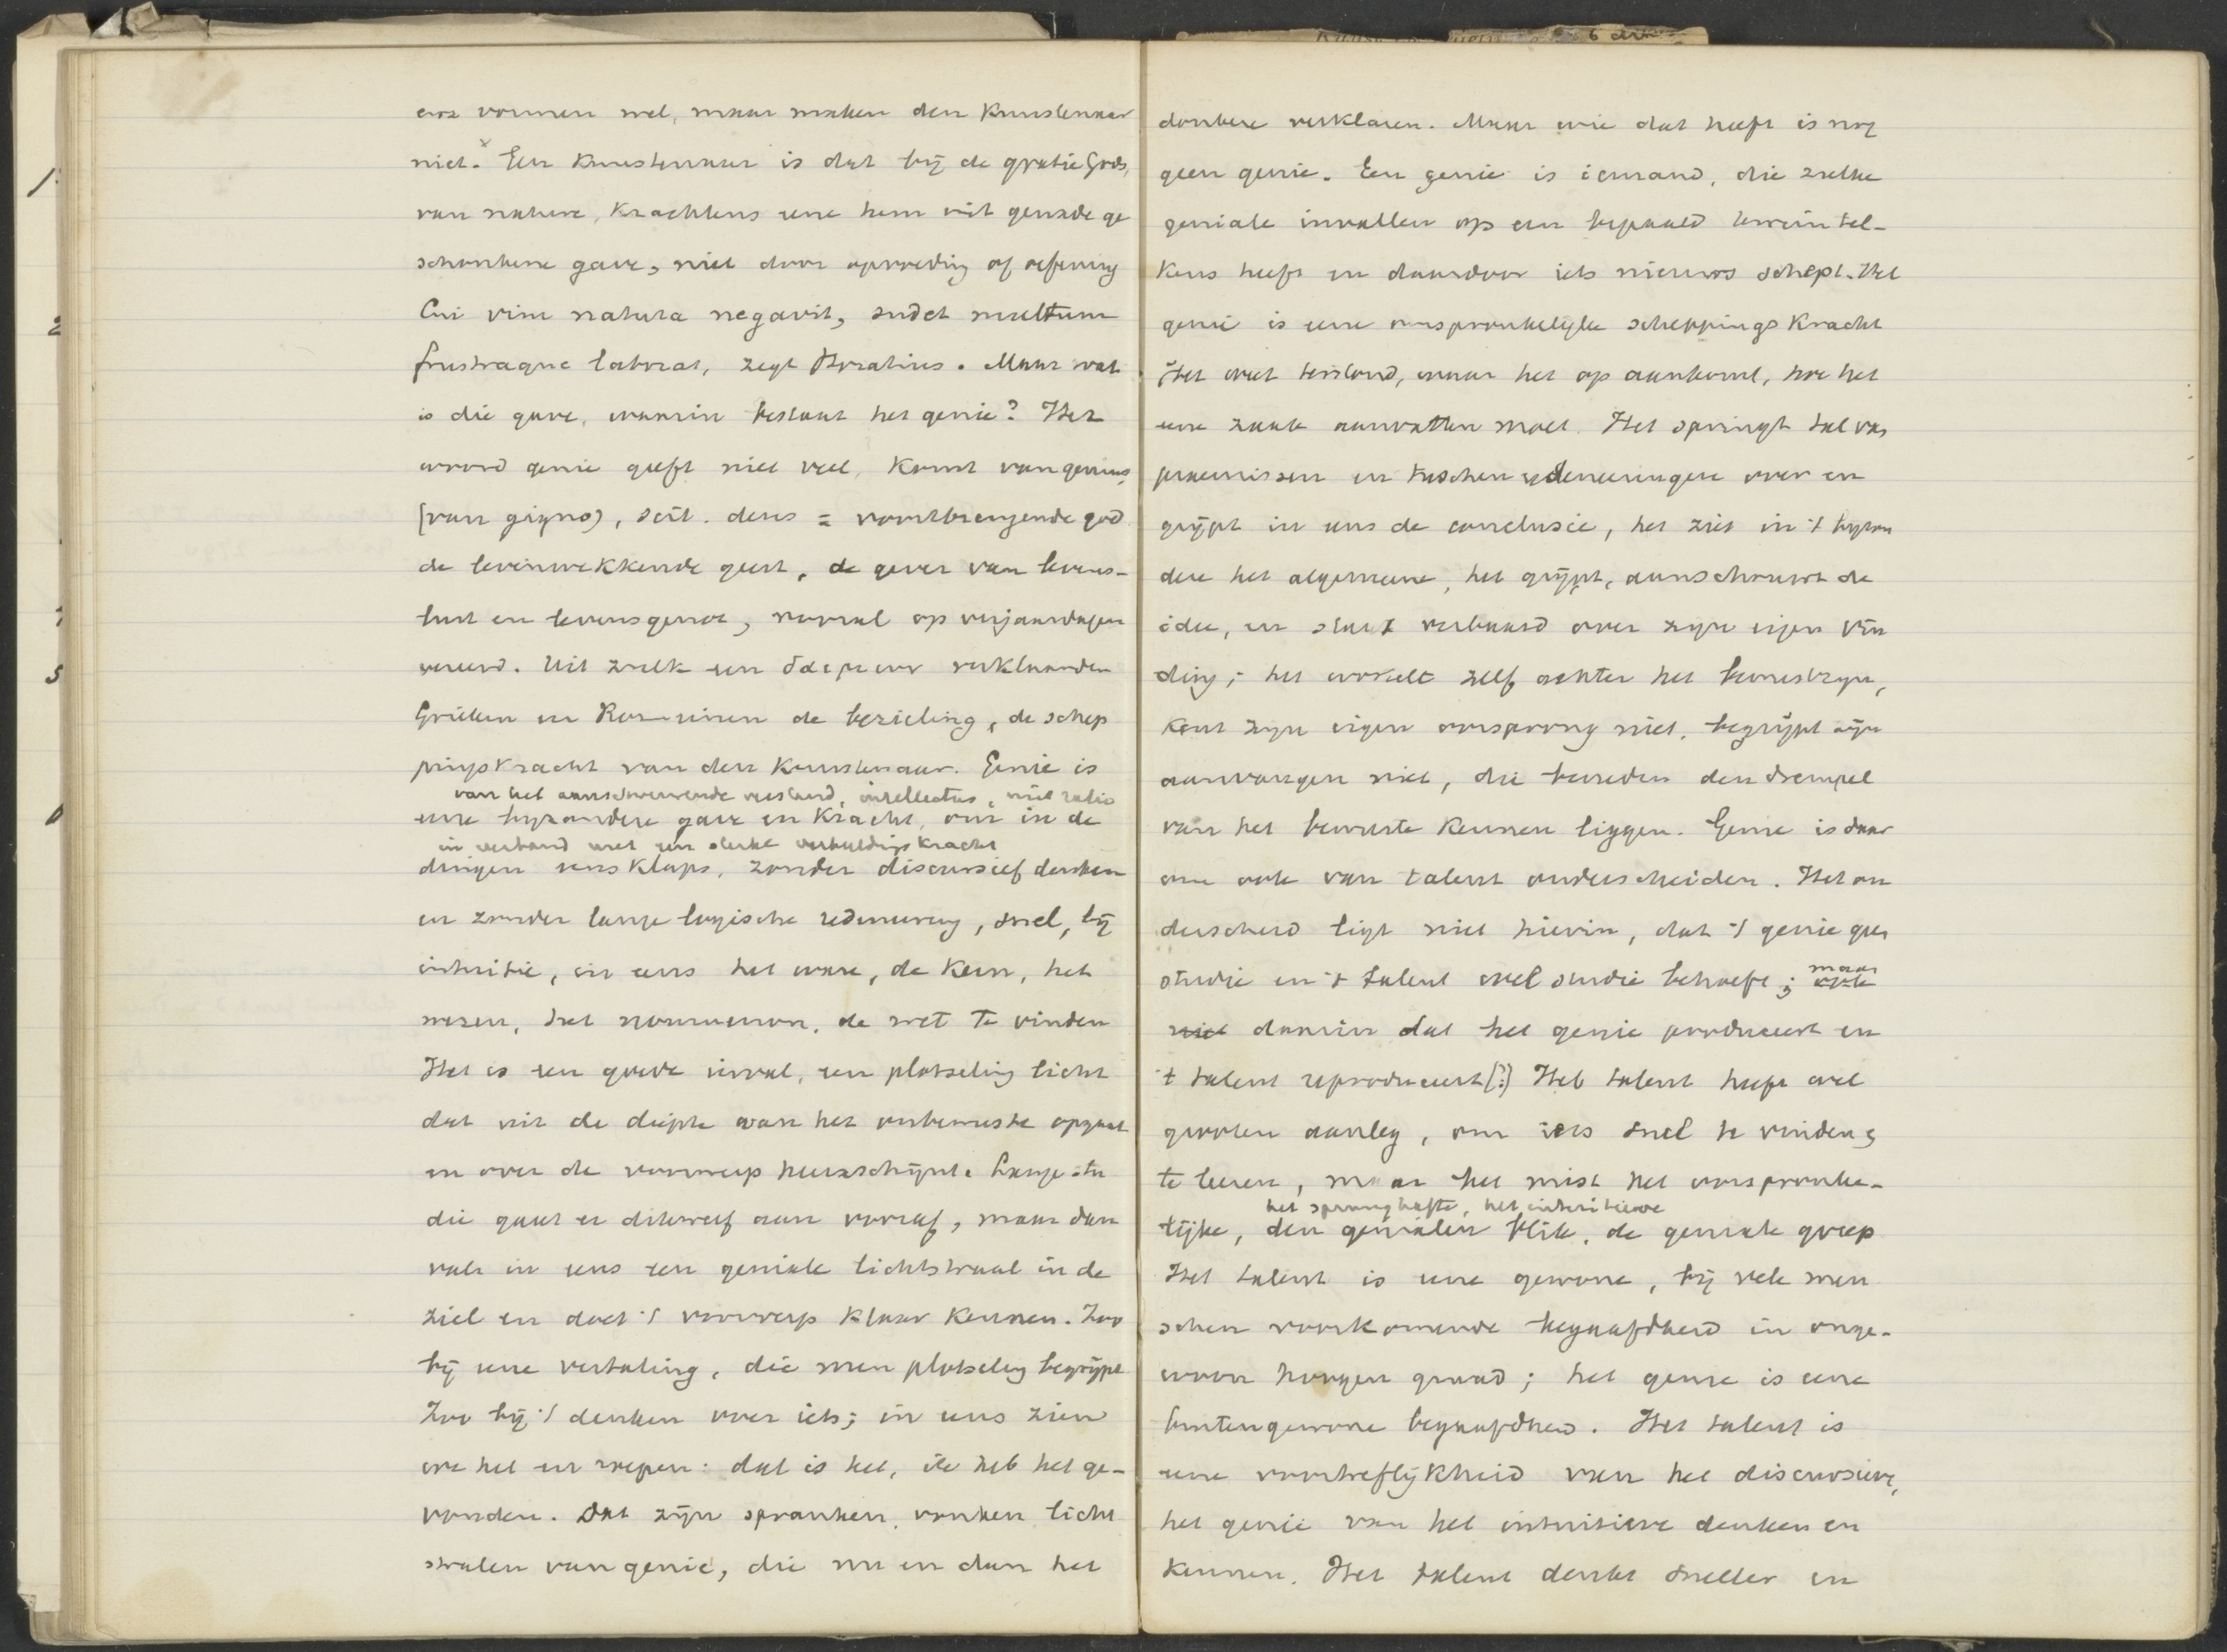 enz vormen wel, maar maken den Kunstenaar
niet. x Een Kunstenaar is dat bij de gratie Gods,
van nature, krachtens eene hem uit genade ge
schonkene gave, niet door opvoeding of oefening
Cui vim natura negavit, sudet multum
frustraque laborat, zegt Horatius. Maar wat
is die gave, waarin bestaat het genie? Het
woord genie geeft niet veel, komt van genius,
(van gigno), scil. deus = voortbrengende god
de levenwekkende geest, de gever van levens-
lust en levensgenot, vooral op verjaardagen
vereerd. Uit zulk een δαιμων verklaarden
Grieken en Romeinen de bezieling, de schep
pingskracht van den Kunstenaar. Genie is
van het aanschouwende verstand, intellectus, niet ratio
eene byzondere gave en Kracht, om in de
in verband met een sterke verbeeldingskracht
dingen eensklaps, zonder discursief denken
en zonder lange logische redeneering, snel, bij
intuitie, in eens het ware, de Kern, het
wezen, het noumenon, de wet te vinden
Het is een goede inval, een plotseling licht
dat uit de diepte van het onbewuste opgaat
en over de voorwerp heenschijnt. Lange stu
die gaat er dikwerf aan vooraf, maar dan
valt in eens een geniale lichtstraal in de
ziel en doet 't voorwerp klaar Kennen. Zoo
bij eene vertaling, die men plotseling begrijpt
Zoo bij 't denken over iets; in eens zien
we het en roepen: dat is het, ik heb het ge-
vonden. Dat zijn spranken, vonken licht
stralen van genie, die nu en dan het
donkere verklaren. Maar wie dat heeft is nog
geen genie. Een genie is iemand, die zulke
geniale invallen op een bepaald terrein tel-
kens heeft en daardoor iets nieuws schept. Het
genie is eene oorspronkelijke scheppingskracht
Het weet terstond, waar het op aankomt, hoe het
eene zaak aanvatten moet. Het springt tal van
praemissen en tusschenredeneeringen over en
grijpt in eens de conclusie, het ziet in 't byzon
dere het algemeene, het grijpt, aanschouwt de
idee, en staat verbaasd over zijn eigen vin
ding; het wortelt zelf achter het bewustzijn,
Kent zijn eigen oorsprong niet, begrijpt zijn
aanvangen niet, die beneden den drempel
van het bewuste Kennen liggen. Genie is daar
om ook van talent onderscheiden. Het on
derscheid ligt niet hierin, dat 't genie geen
studie en 't talent wel studie behoeft; maar ook
niet daarin dat het genie produceert en
't talent reproduceert (?) Het talent heeft wel
grooten aanleg, om iets snel te vinden,
te leeren, maar het mist het oorspronke-
het spronghafte, het intuitieve
lijke, den genialen blik, de geniale greep
Het talent is eene gewone, bij vele men
schen voorkomende begaafdheid in onge-
woon hoogen graad; het genie is eene
buitengewone begaafdheid. Het talent is
eene voortreflijkheid van het discursieve,
het genie van het intuitieve denken en
Kennen. Het talent denkt sneller en